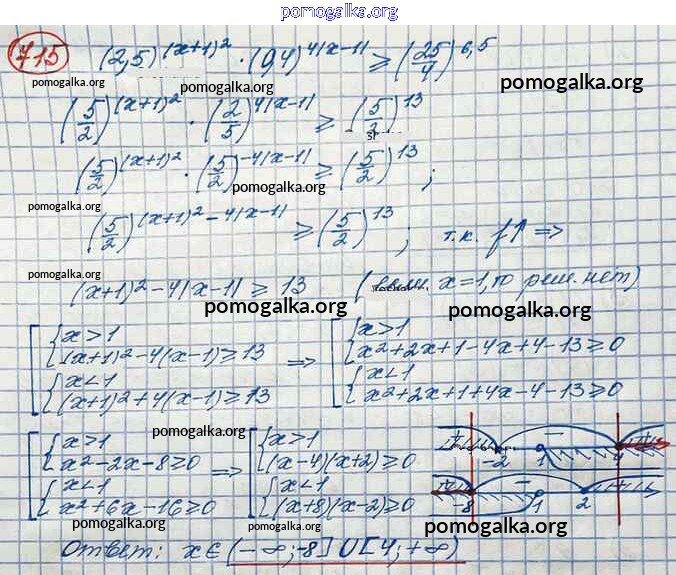 pomogalka.org
715 (2,5)^(x+1)² · (0,4)^4|x-1| ≥ (25/4)^6,5
pomogalka.org
pomogalka.org
pomogalka.org
(5/2)^(x+1)² · (2/5)^4|x-1| ≥ (5/2)^13
(5/2)^(x+1)² · (5/2)^-4|x-1| ≥ (5/2)^13 ;
pomogalka.org
pomogalka.org
(5/2)^(x+1)² - 4|x-1| ≥ (5/2)^13 ; т.к. f↑ ⇒
pomogalka.org
(x+1)² - 4|x-1| ≥ 13 ( x=1, то реш. нет)
pomogalka.org
pomogalka.org
[ { x>1 ⇒ [ { x>1
(x+1)²-4(x-1)≥13 x²+2x+1-4x+4-13≥0
{ x<1 { x<1
(x+1)²+4(x-1)≥13 x²+2x+1+4x-4-13≥0
pomogalka.org
[ { x>1 ⇒ [ { x>1 + - +
x²-2x-8≥0 (x-4)(x+2)≥0 -2 1 4
{ x<1 { x<1 + - +
x²+6x-16≥0 (x+8)(x-2)≥0 -8 1 2
pomogalka.org
pomogalka.org
Ответ: x∈(-∞;-8]U[4;+∞)